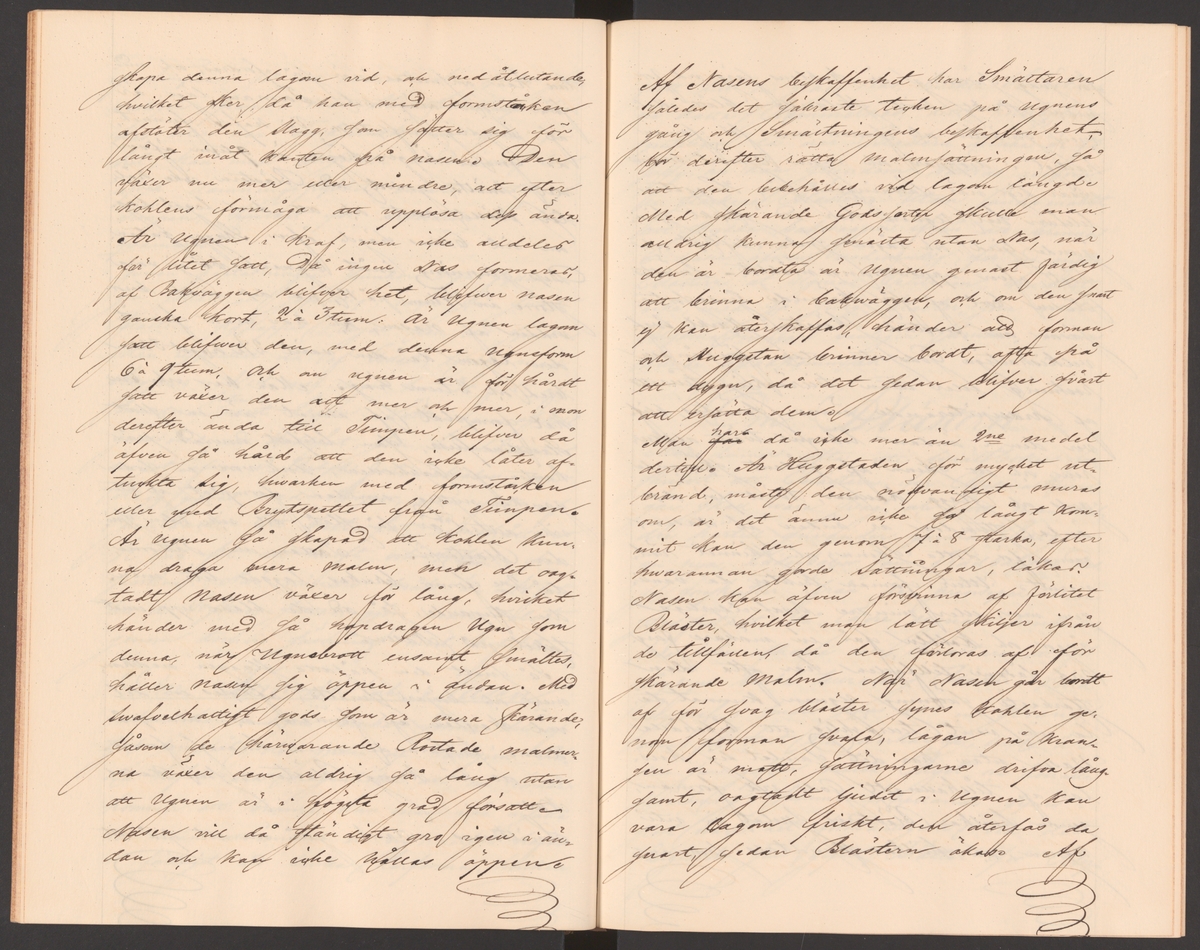 skapa denna lagom vid, och nedåtlutande,
hvilket sker då han med formstaken
afstöter den slagg, som sätter sig för
långt inåt kanten på nasen. Den
växer nu mer eller mindre, alt efter
kohlens förmåga att upplösa dess ända.
Är Ugnen i kraf, men icke alldeles
för litet satt, då ingen Nas formeras,
af Bakväggen blifver het, blifwer nasen
ganska kort, 2 à 3 tum. Är Ugnen lagom
satt blifwer den, med denna Ugnsform
6 à 9 tum, och om ugnen är för hårdt
satt växer den alt mer och mer, i mon
derefter ända till Timpen, blifver då
äfven så hård att den icke låter af-
tückta sig, hwarken med formstaken
eller med Brytspettet från Timpen.
Är Ugnen så skapad att kohlen kun-
na draga mera malm, men det oag-
tadt Nasen växer för lång, hvilket
händer med så hopdragen Ugn som
denna, när Ugnsbrott ensamt smältes,
håller nasen sig öppen i ändan. Med
swafvelhaltigt gods som är mera skärande,
såsom de härwarande Rostade malmer-
na växer den aldrig så lång utan
att Ugnen är i högsta grad försatt.
Nasen vill då ständigt gro igen i än-
dan och kan icke hållas öppen.
Af Nasens beskaffenhet har Smältaren
således det säkraste tecken på Ugnens
gång och Smältningens beskaffenhet,
bör derefter rätta malmsättningen, så
att den bibehålles vid lagom längd.
Med skärande Godssorter skulle man
aldrig kunna smälta utan Nas, när
den är borta är Ugnen genast färdig
att brinna i bakwäggen, och om den snart
ej kan återskaffas, händer att forman
och Huggstan brinner bordt, ofta på
ett dygn, då det sedan blifver svårt
att ersätta dem.
Man hars då icke mer än 2ne medel
dertill. Är Huggstaden för mycket ut-
bränd, måste den nödvändigt muras
om, är det ännu icke så långt kom-
mit kan den genom 7 à 8 starka, efter
hwarannan gorde sättningar, läkas.
Nasen kan äfven försvinna af förlitet
Bläster, hvilket man lätt skiljer ifrån
de tillfällen, då den förloras af för
skärande Malm. När Nasen går bordt
af för svag bläster synes kohlen ge-
nom forman svarta, lågan på kran-
sen är matt, sättningarne drifva lång-
samt, oagtadt ljudet i Ugnen kan
vara lagom friskt, den återfås då
snart, sedan Blästern ökas. Af